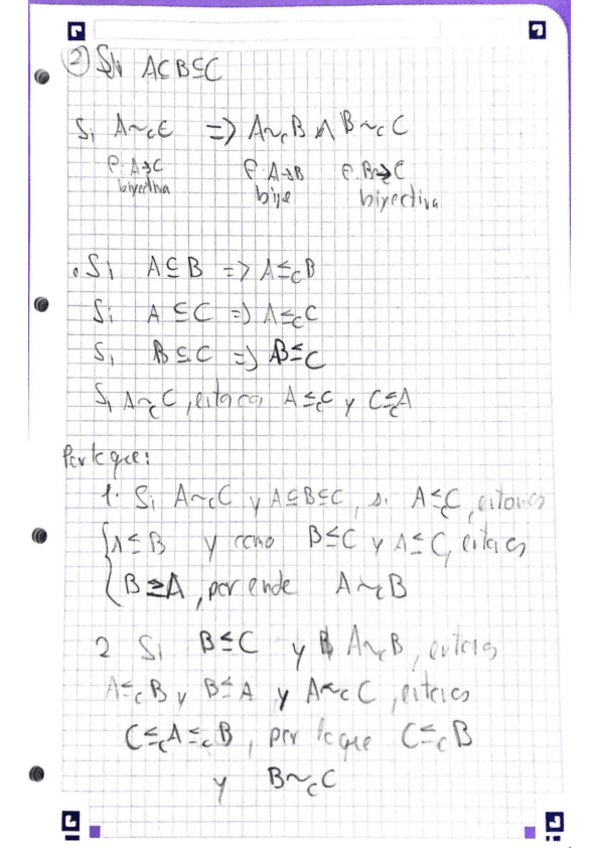 ② Si A⊆B⊆C
Si A~cC => A~cB ∧ B~cC
f: A→C f: A→B f: B→C
biyectiva biye biyectiva
. Si A⊆B => A≤cB
Si A⊆C => A≤cC
Si B⊆C => B≤C
Si A~cC, entonces A≤cC y C≤cA
Por lo que:
1. Si A~cC y A⊆B⊆C, si A≤C, entonces
A≤B y como B≤C y A≤C, entonces
B≥A, por ende A~cB
2 Si B≤C y A~cB, entonces
A≤cB y B≤A y A~cC, entonces
C≤cA≤cB, por lo que C≤cB
y B~cC